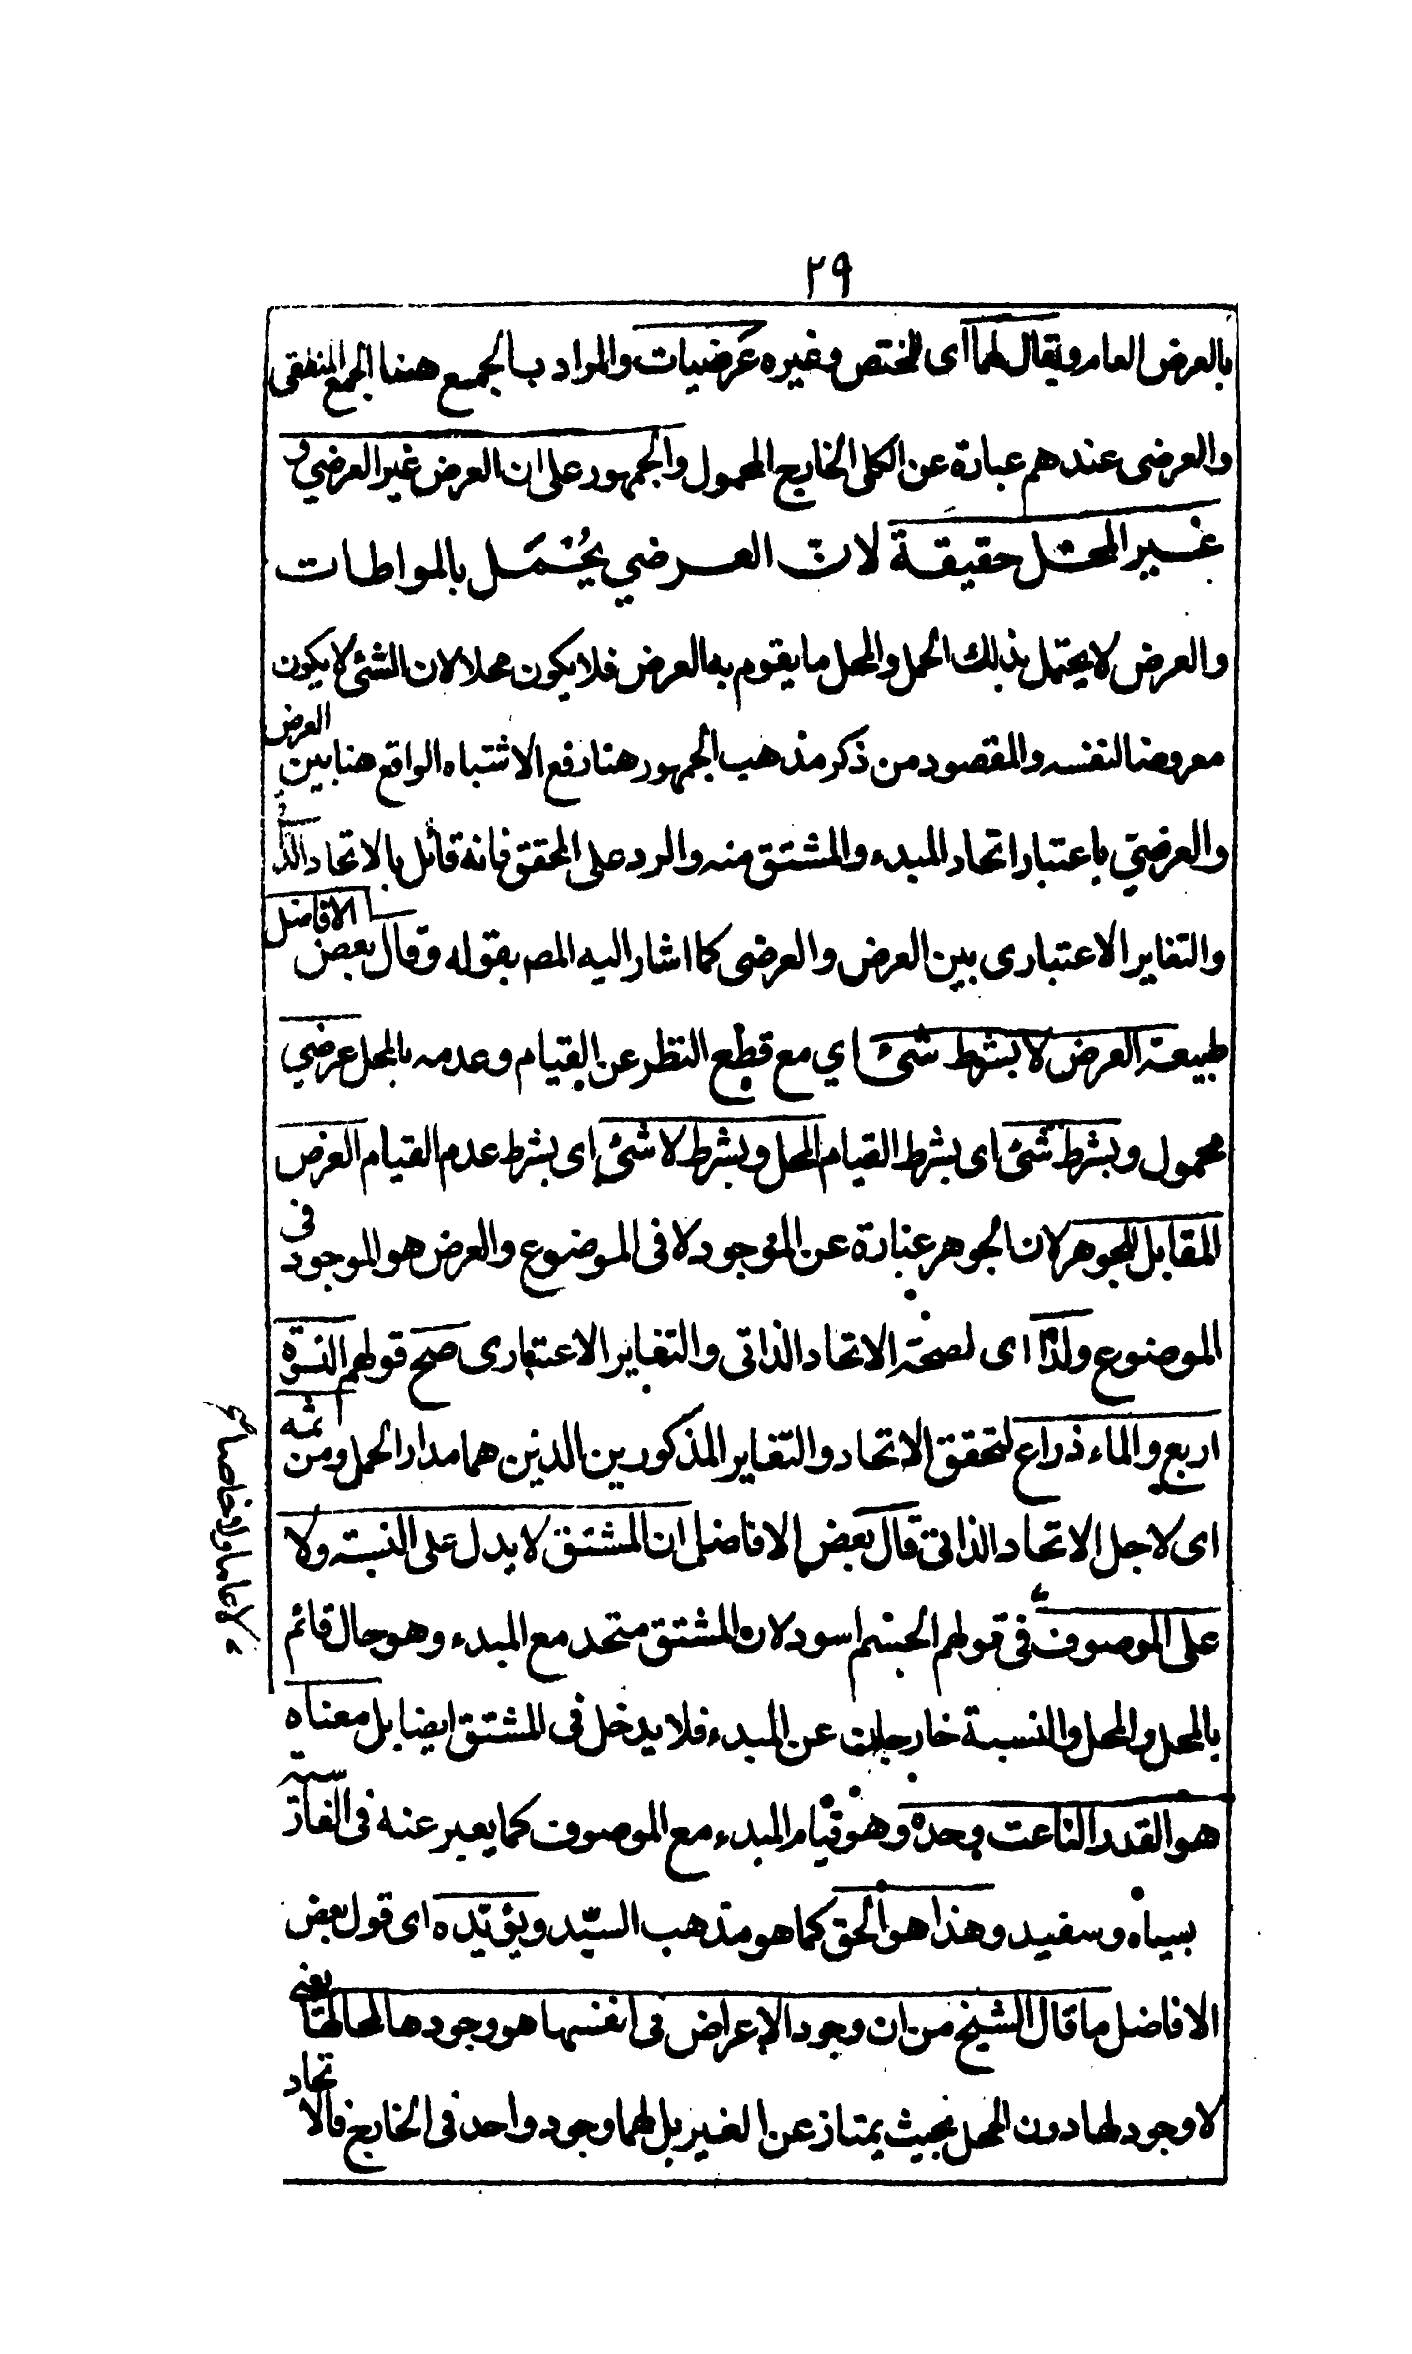 ٢٩
بالعرض العام ويقال لهما اى للمختص وغيره عرضيات والمراد بالجمع ههنا الجمع المنطقى
والعرضى عندهم عبارة عن الكلى الخارج المحمول والجمهور على ان العرض غير العرضي و
غير المحل حقيقة لان العرضي يُحْمَل بالمواطات
والعرض لا يحتمل بذلك الحمل والمحل ما يقوم به العرض فلا يكون محلا لان الشئ لا يكون
معروضا لنفسه والمقصود من ذكر مذهب الجمهور هنا رفع الاشتباه الواقع هنا بين العرض
والعرضي باعتبار اتحاد المبدء والمشتق منه والرد على المحقق فانه قائل بالاتحاد الذاتى
والتغاير الاعتبارى بين العرض والعرضى كما اشار اليه المصـ بقوله وقال بعض الافاضل
طبيعة العرض لا بشرط شئ اي مع قطع النظر عن القيام وعدمه بالمحل عرضي
محمول وبشرط شئ اى بشرط القيام المحل وبشرط لا شئ اى بشرط عدم القيام العرض
المقابل للجوهر لان الجوهر عبارة عن الموجود لا فى الموضوع والعرض هو الموجود فى
الموضوع ولذا اى لصحة الاتحاد الذاتى والتغاير الاعتبارى صح قولهم النسوة
اربع والماء ذراع لتحقق الاتحاد والتغاير المذكورين الذين هما مدار الحمل ومن ثمه
اى لاجل الاتحاد الذاتى قال بعض الافاضل ان المشتق لا يدل على النسبته ولا
على الموصوف فى قولهم الجسم اسود لان المشتق متحد مع المبدء وهو حال قائم
بالمحل والمحل والنسبة خارجات عن المبدء فلا يدخل فى المشتق ايضا بل معناه
هو القدر الناعت وحده وهو قيام المبدء مع الموصوف كما يعبر عنه فى الفارسية
بسياه وسفيد وهذا هو الحق كما هو مذهب السيّد ويؤيّده اى قول بعض
الافاضل ما قال الشيخ من ان وجود الاعراض فى انفسها هو وجودها لمحالها يعنى
لا وجود لها دون المحل بحيث يمتاز عن الغير بل لهما وجود واحد فى الخارج فالاتحاد
لا عاما ولا خاصا